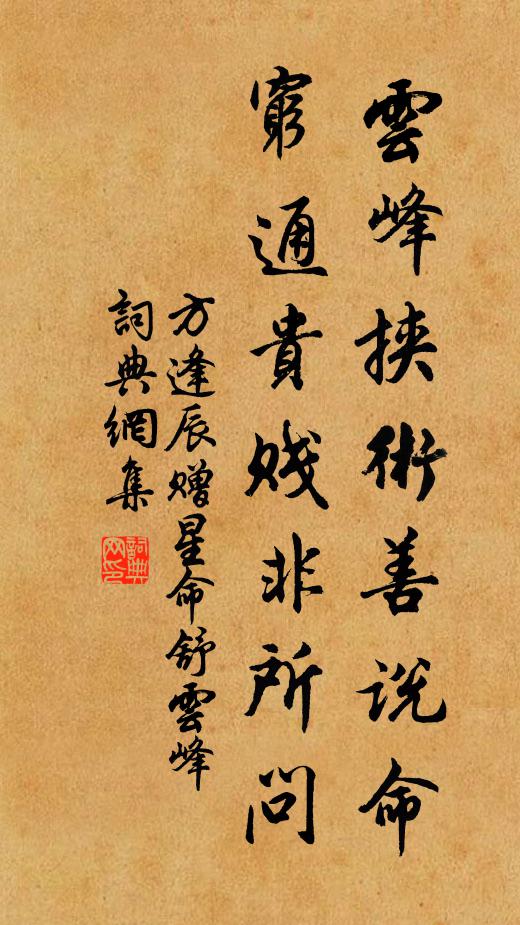 雲峰挾術善説命
窮通貴賤非所問
方逢辰贈星命舒雲峰
詞典網集
詞典
网印